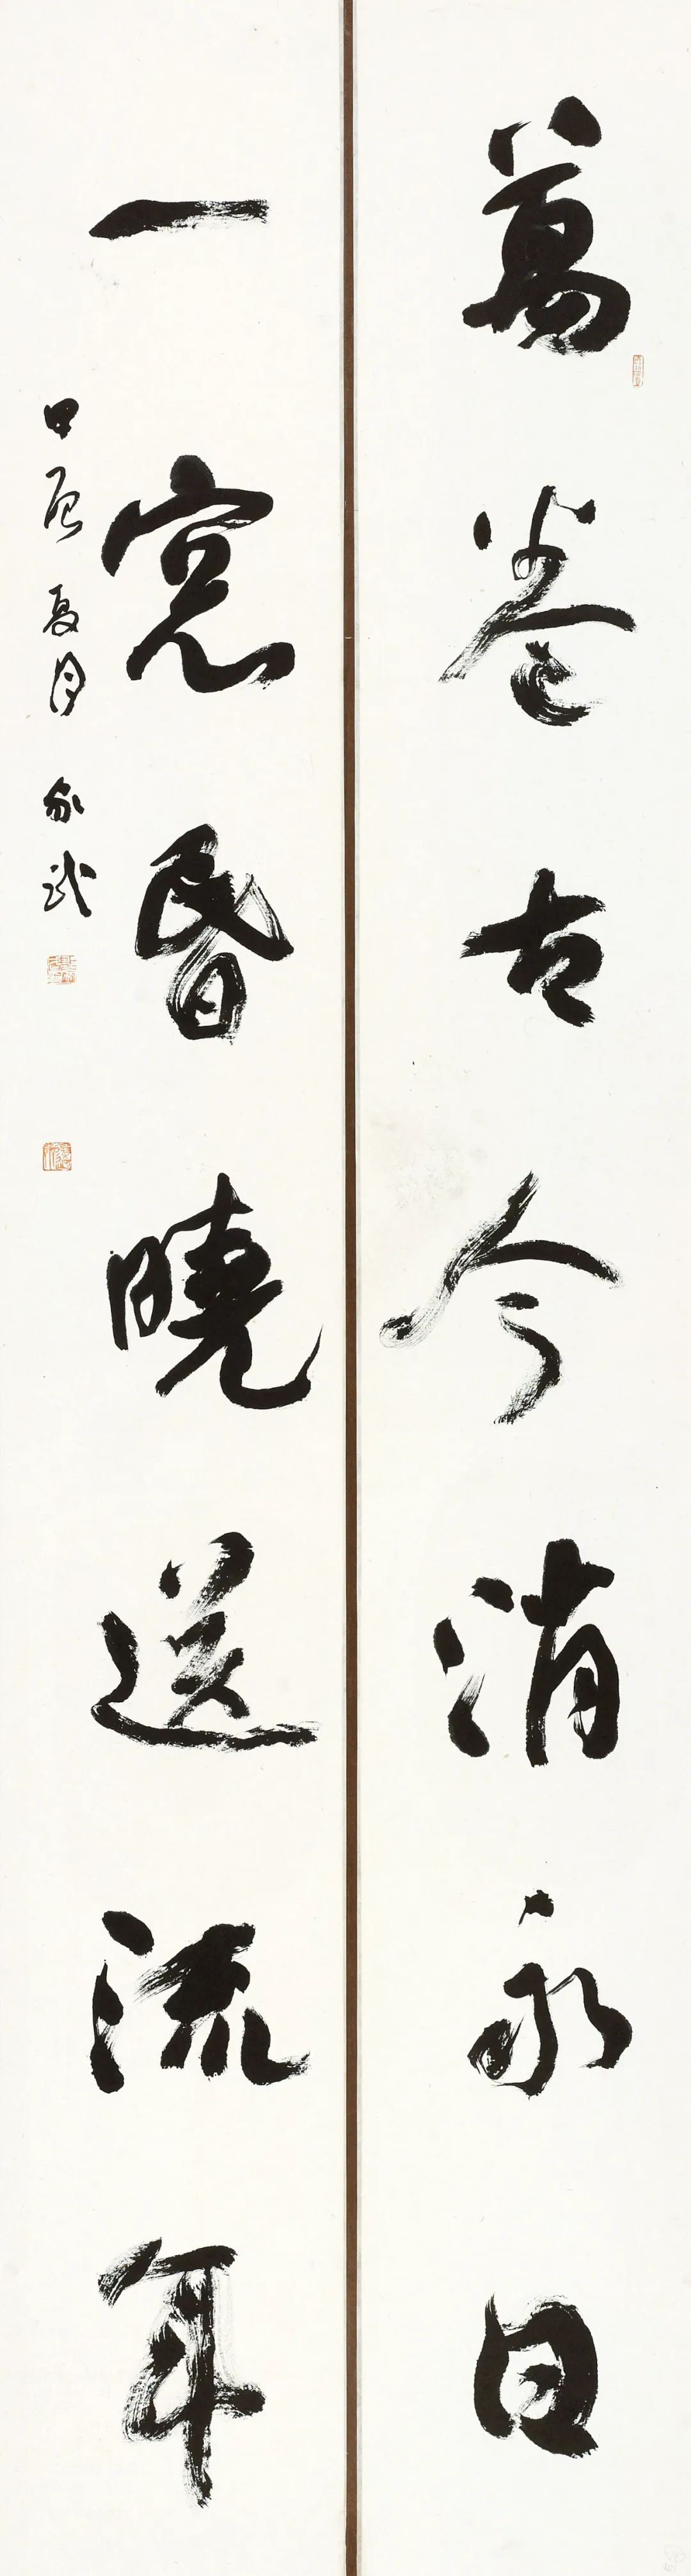 萬卷古今消永日
一窓昏曉送流年
甲辰夏月 家武